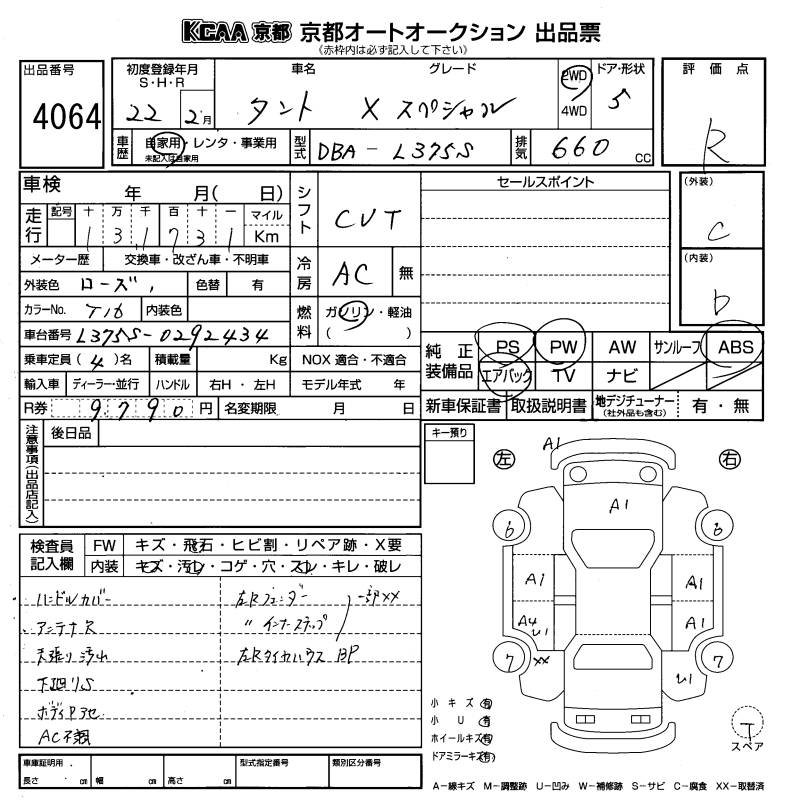 KCAA 京都 京都オートオークション 出品票
(赤枠内は必ず記入して下さい)
出品番号 4064
初度登録年月 S・H・R 22 2月
車名 タント
グレード X スペシャル
2WD 4WD
ドア・形状 5
評価点 R
車歴 自家用・レンタ・事業用
未記入は自家用
型式 DBA-L375S
排気 660 CC
車検 年 月( 日)
シフト CVT
セールスポイント
(外装) C
走行 記号 十 万 千 百 十 一 マイル
131731 Km
メーター歴 交換車・改ざん車・不明車
冷房 AC 無
(内装) D
外装色 ローズ 色替 有
カラーNo. T16 内装色
燃料 ガソリン・軽油
( )
車台番号 L375S-0292434
純正装備品 PS PW AW サンルーフ ABS
エアバック TV ナビ
乗車定員(4)名 積載量 Kg NOX 適合・不適合
輸入車 ディーラー・並行 ハンドル 右H・左H モデル年式 年
R券 9790円 名変期限 月 日
新車保証書 取扱説明書 地デジチューナー (社外品も含む) 有・無
注意事項(出品店記入) 後日品
キー預り
左 右
A1
A1
6 6
A1 A1
A4 U1 A1
7 XX 7
U1
検査員記入欄 FW キズ・飛石・ヒビ割・リペア跡・X要
内装 キズ・汚レ・コゲ・穴・スレ・キレ・破レ
ハンドルカバー 左Rフェンダー 一部XX
アンテナ欠 〃 インナーステップ
天張り汚れ 左Rタイヤハウス BP
下回りS
ボディアセ
AC不調
小キズ(有)
小U(有)
ホイールキズ(有)
ドアミラーキズ(有)
T
スペア
車庫証明用. 長さ cm 幅 cm 高さ cm 型式指定番号 類別区分番号
A-線キズ M-調整跡 U-凹み W-補修跡 S-サビ C-腐食 XX-取替済